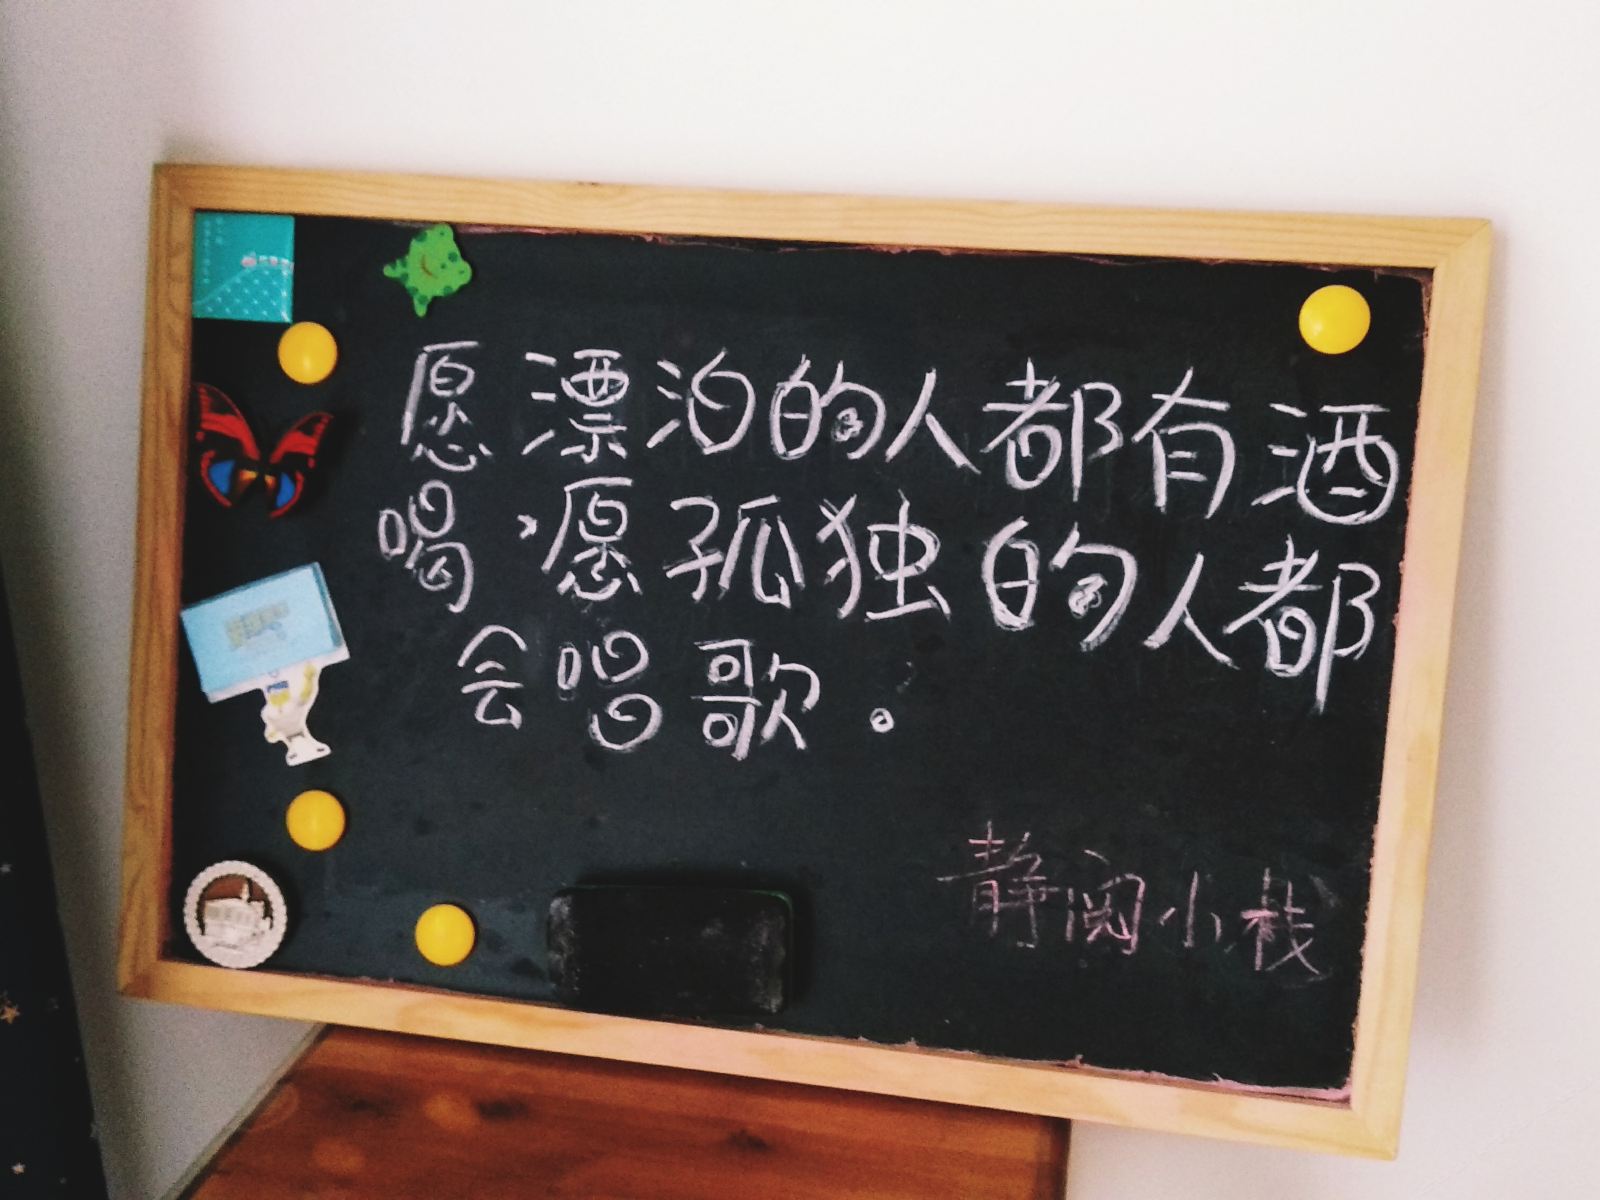 愿漂泊的人都有酒
喝，愿孤独的人都
会唱歌。
静阅小栈